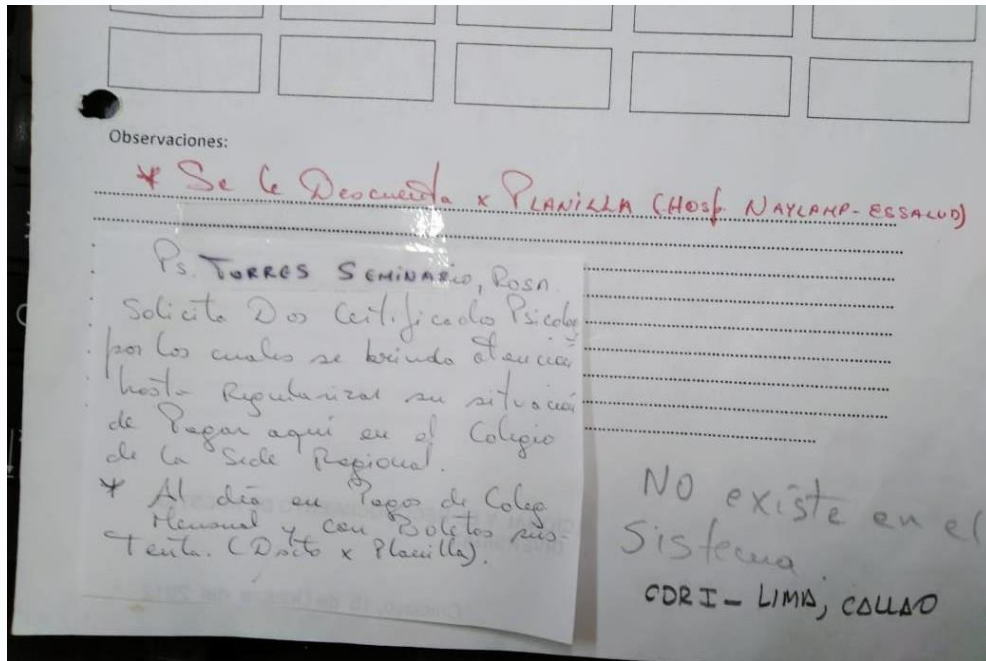 Observaciones:
* Se le Descuenta x PLANILLA (HOSP. NAYLAMP-ESSALUD)
Ps. TORRES SEMINARIO, ROSA.
Solicita Dos Certificados Psicolog
por los cuales se brinda atención
hasta Regularizar su situación
de Pagar aquí en el Colegio
de la Sede Regional.
* Al día en Pagos de Coleg
Mensual y con Boletos sus-
tenta. (Dscto x Planilla).
NO existe en el
Sistema
CDRI - LIMA, CALLAO